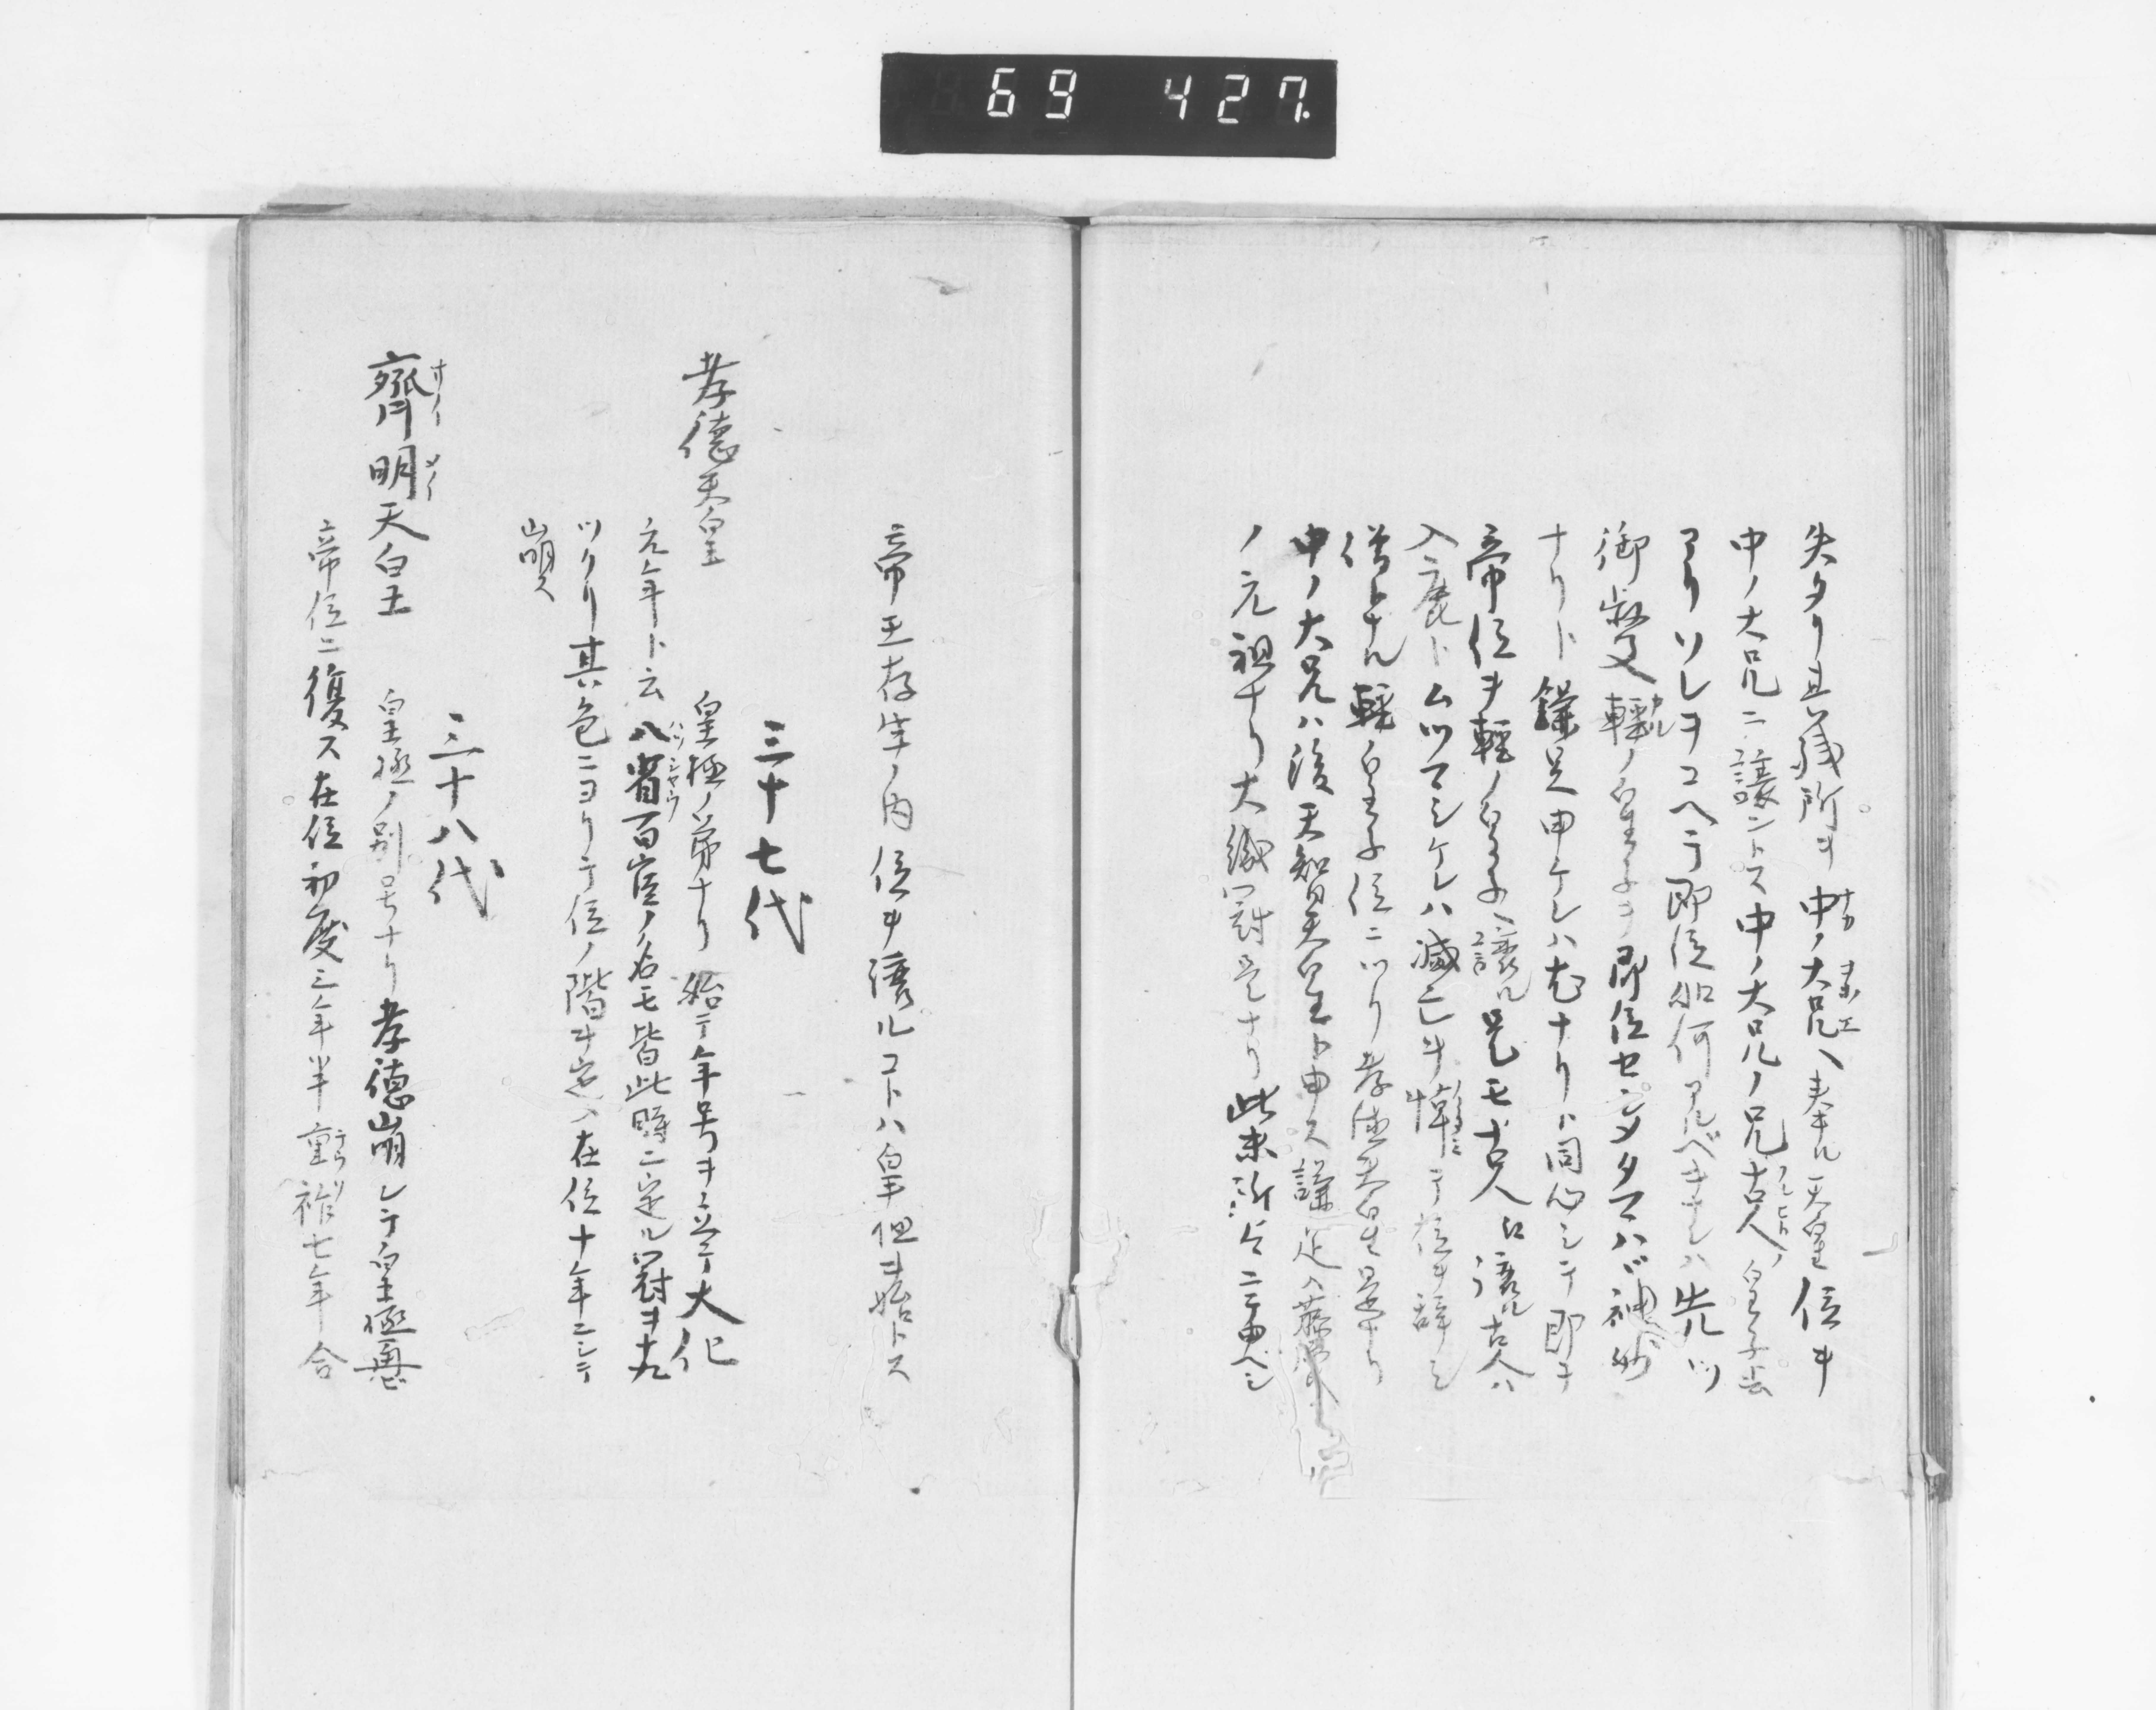 69 427.
失タリ其義所ヲ中ノ大兄ヘ奉ル天皇位ヲ
中ノ大兄ニ譲ントス中ノ大兄ノ兄古人ノ皇子ト云
アリソレヲコヘテ即位如何アルベキナレハ先ツ
御叔父軽ノ皇子ヲ即位セシメタマハバ神妙
ナリト鎌足申ケレハ尤ナリト同心シテ即チ
帝位ヲ軽ノ皇子ヘ譲ル是モ古人ニ譲ル古人ハ
入鹿トムツマシケレハ滅亡ヲ憚テ位ヲ辞シ
僧トナル軽ノ皇子位ニツク孝徳天皇是ナリ
中ノ大兄ハ後天智天皇ト申ス鎌足ハ藤原
ノ元祖ナリ大織冠是ナリ此末所々ニ申ベシ
帝王存生ノ内位ヲ譲ルコトハ皇極ヲ始トス
三十七代
孝徳天皇 皇極ノ弟ナリ始テ年号ヲ立テ大化
元年ト云八省百官ノ名モ皆此時ニ定ル冠ヲ十九
ツクリ其色ニヨリテ位ノ階ヲ定ム在位十年ニシテ
崩ス
三十八代
齊明天皇 皇極ノ別号ナリ孝徳崩シテ皇極再ビ
帝位ニ復ス在位初度三年半重祚七年合